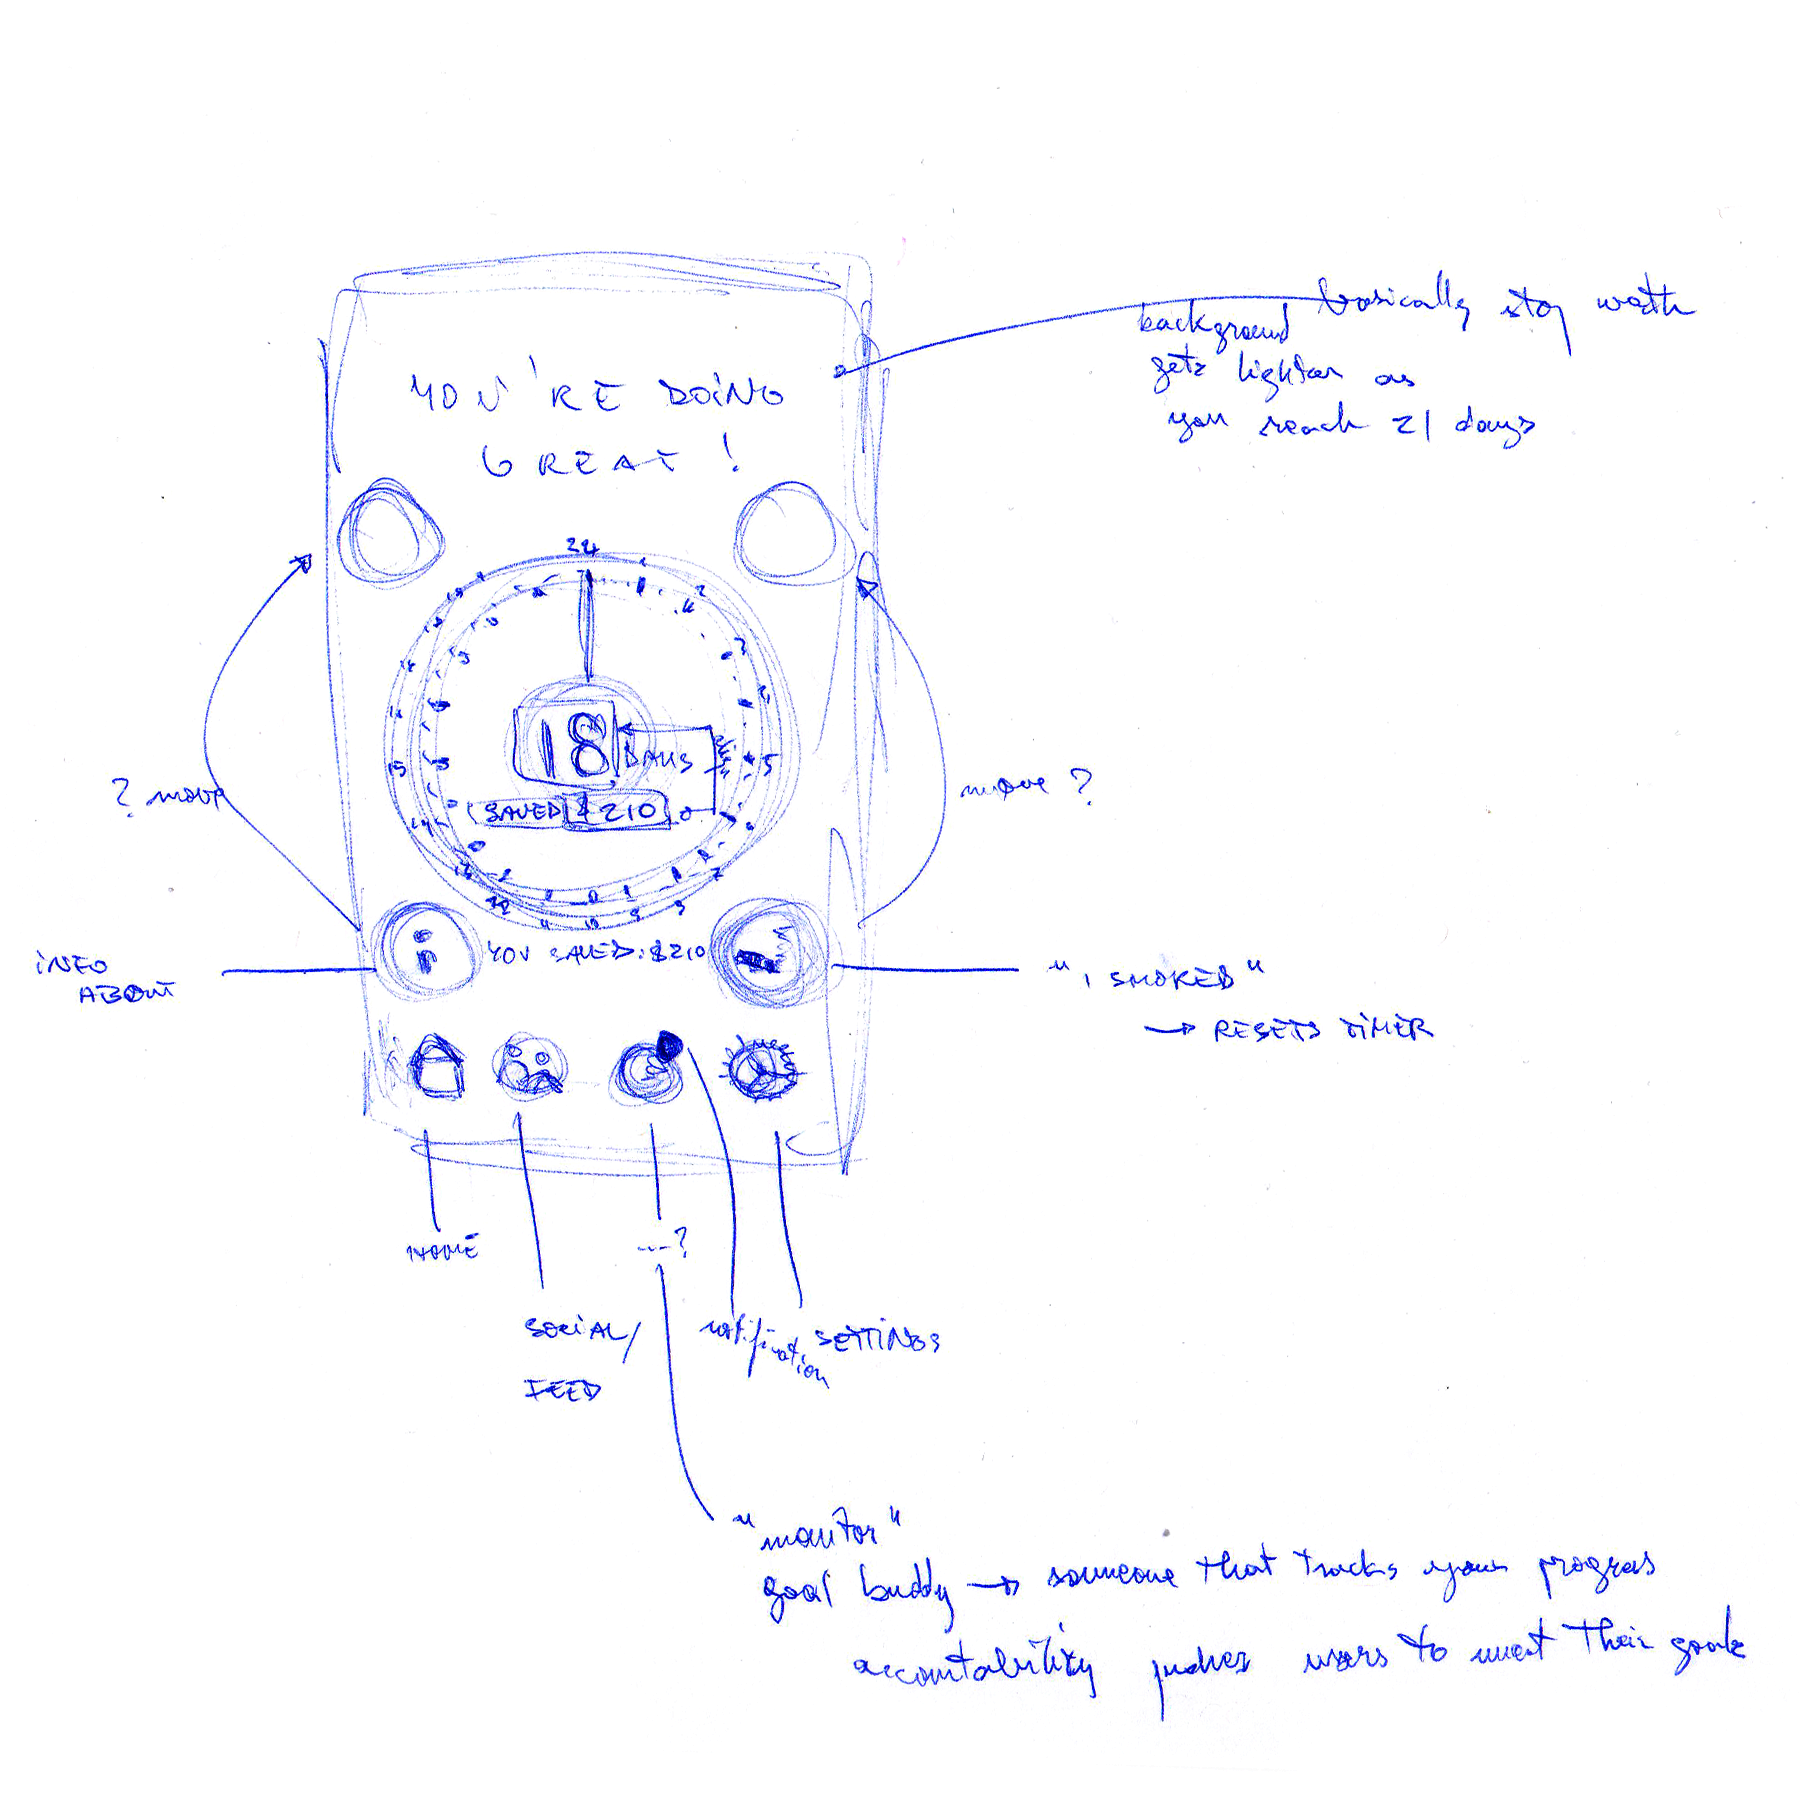 basically stop
background
gets lighter as
you reach 21 days
YOU'RE DOING
GREAT !
24
18
DAYS
SAVED $210
? move
move ?
i
YOU SAVED: $210
INFO
ABOUT
"I SMOKED"
→ RESETS TIMER
HOME
---?
SOCIAL/
FEED
notification
SETTINGS
"monitor"
goal buddy → someone that tracks your progress
accountability pushes users to meet their goals